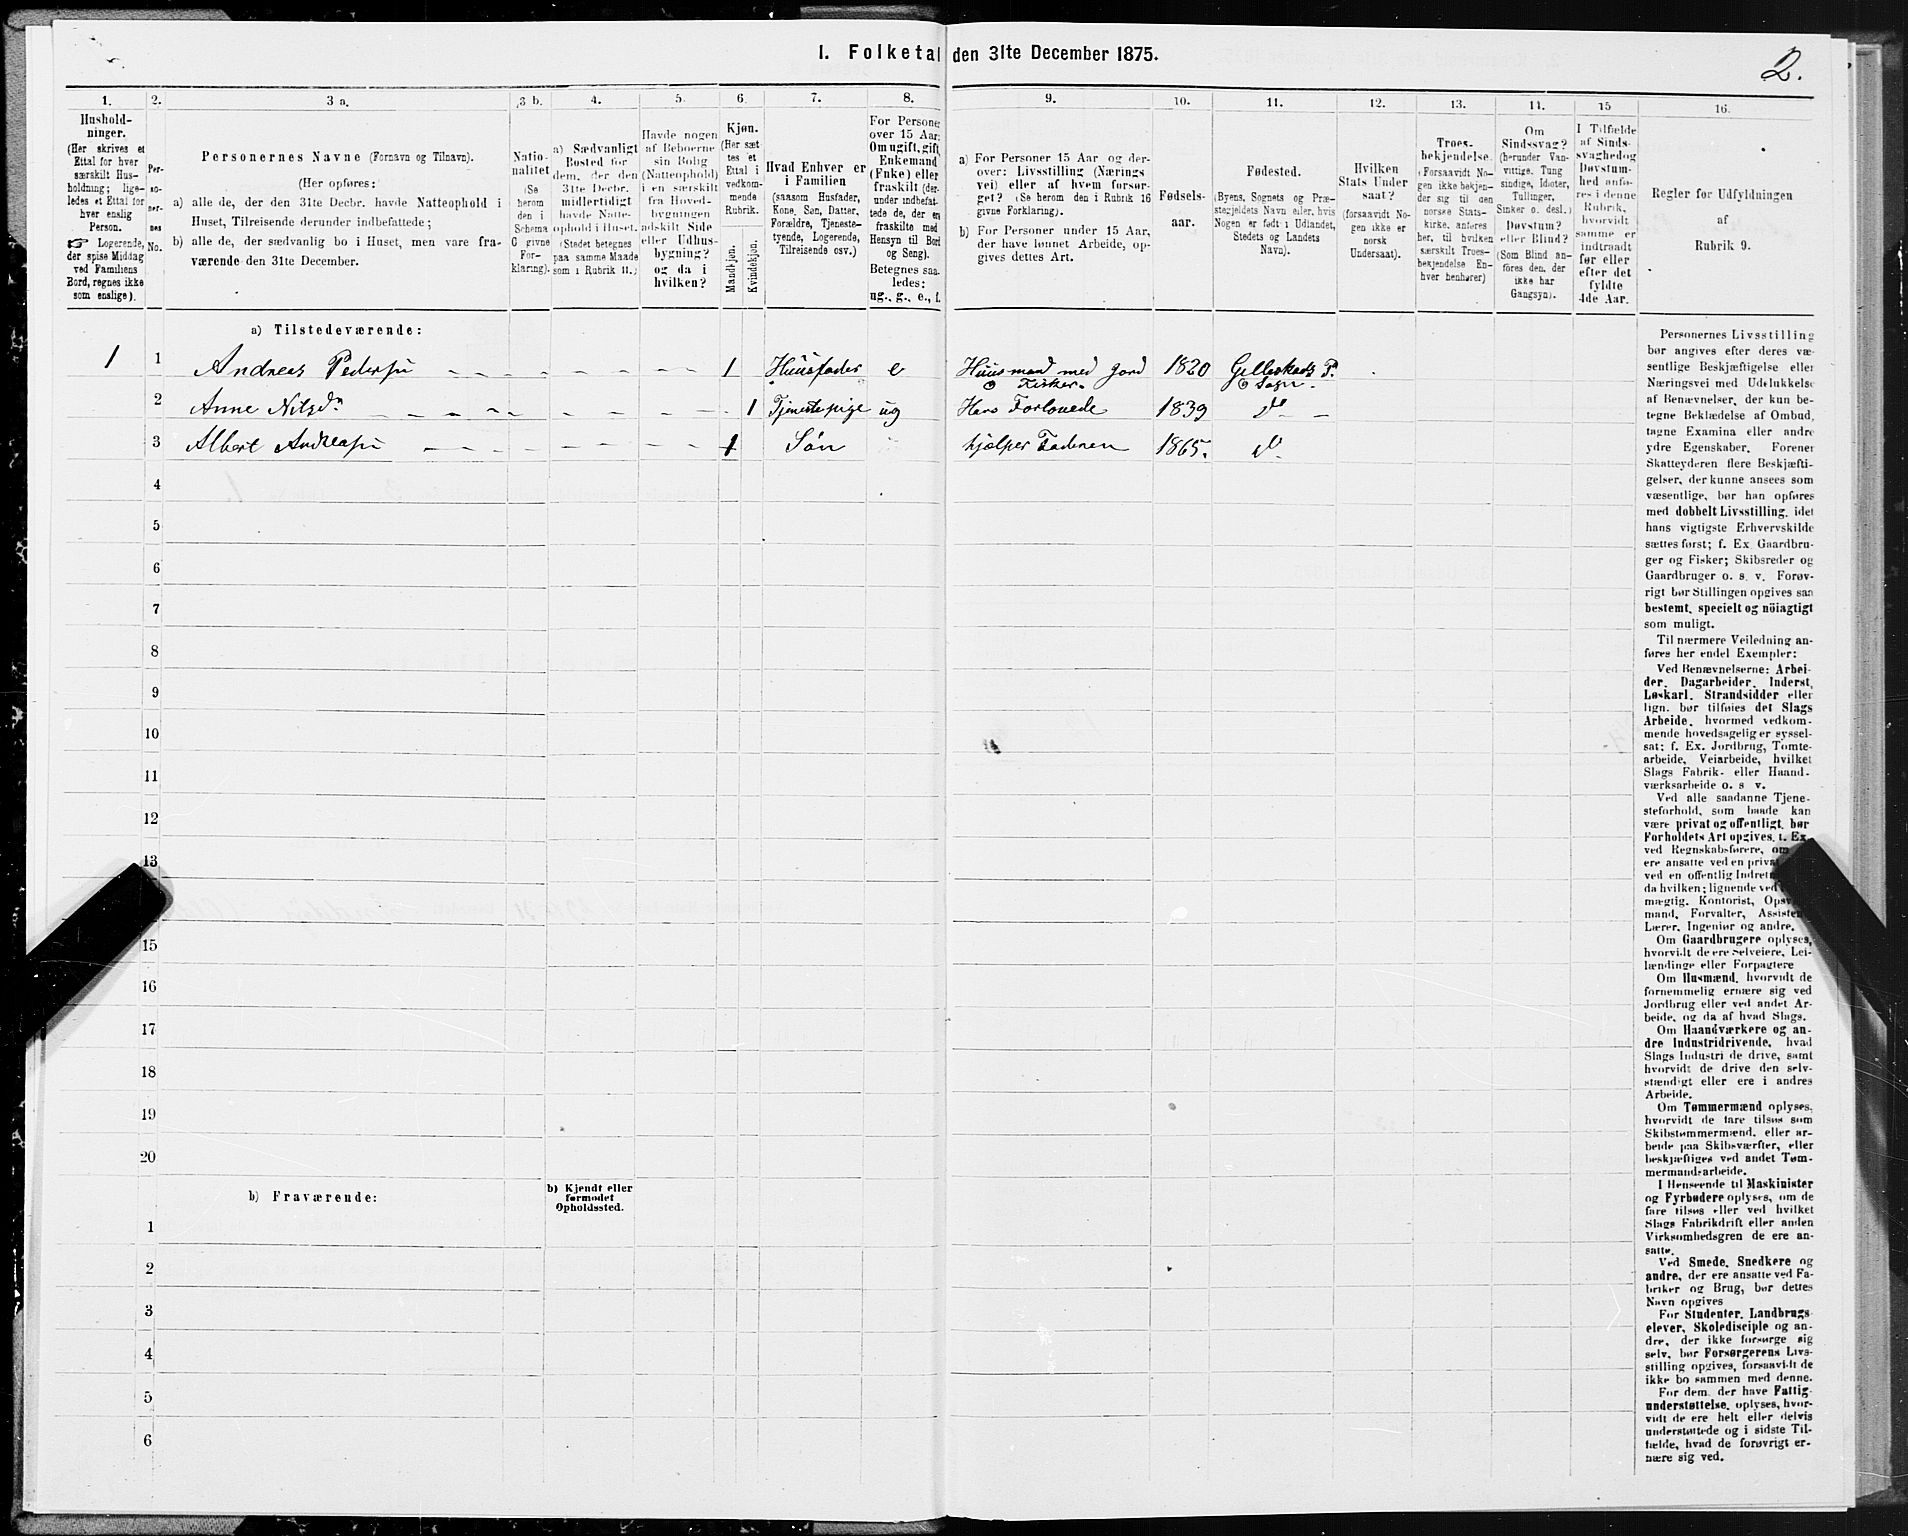 I. Folketal den 31te December 1875.
2.
1.
Hushold-
ninger.
(Her skrives et
Ettal for hver
særskilt Hus-
holdning; lige-
ledes et Ettal for
hver enslig
Person.
☞ Logerende,
der spise Middag
ved Familiens
Bord, regnes ikke
som enslige).
2.
Per-
so-
ner-
nes
No.
3 a.
Personernes Navne (Fornavn og Tilnavn).
(Her opføres:
a) alle de, der den 31te Decbr. havde Natteophold i
Huset, Tilreisende derunder indbefattede;
b) alle de, der sædvanlig bo i Huset, men vare fra-
værende den 31te December.
3 b.
Natio-
nalitet
(Se
herom
den i
Schema
C givne
For-
klaring).
4.
a) Sædvanligt
Bosted for
dem, der den
31te Decbr.
midlertidigt
havde Natte-
ophold i Huset.
(Stedet betegnes
paa samme Maade
som i Rubrik 11.)
5.
Havde nogen
af Beboerne
sin Bolig
(Natteophold)
i en særskilt
fra Hoved-
bygningen
adskilt Side
eller Udhus-
bygning?
og da i
hvilken?
6.
Kjøn.
(Her sæt-
tes et
Ettal i
vedkom-
mende
Rubrik.
Mandkjøn.
Kvindekjøn.
7.
Hvad Enhver er
i Familien
(saasom Husfader,
Kone, Søn, Datter,
Forældre, Tjeneste-
tyende, Logerende,
Tilreisende osv.)
8.
For Personer
over 15 Aar:
Om ugift, gift,
Enkemand
(Enke) eller
fraskilt (der-
under indbefat-
tede de, der ere
fraskilte med
Hensyn til Bord
og Seng).
Betegnes saa-
ledes:
ug., g., e., f.
9.
a) For Personer 15 Aar og der-
over: Livsstilling (Nærings
vei) eller af hvem forsør-
get? (Se herom den i Rubrik 16
givne Forklaring).
b) For Personer under 15 Aar,
der have lønnet Arbeide, op-
gives dettes Art.
10.
Fødsels-
aar.
11.
Fødested.
(Byens, Sognets og Præ-
stegjeldets Navn eller, hvis
Nogen er født i Udlandet,
Stedets og Landets
Navn).
12.
Hvilken
Stats Under
saat?
(forsaavidt No-
gen ikke er
norsk
Undersaat).
13.
Troes-
bekjendelse.
(Forsaavidt No-
gen ikke bekjen-
der sig til den
norske Stats-
kirke, anføres
her, til hvilken
særskilt Troes-
bekjendelse En-
hver henhører)
14.
Om
Sindssvag?
(herunder Van-
vittige, Tung
sindige, Idioter,
Tullinger,
Sinker o. desl.)
Døvstum?
eller Blind?
(Som Blind an-
føres den, der
ikke har
Gangsyn).
15
I Tilfælde
af Sinds-
svaghedog
Døvstum-
hed anfø-
res i denne
Rubrik,
hvorvidt
samme er
indtraadt
før eller
efter det
fyldte
4de Aar.
16.
Regler for Udfyldningen
af
Rubrik 9.
a) Tilstedeværende:
1 1 Andreas Pedersen 1 Huusfader e Huusmand med Jord 1820 Gilleskaals P.
o Fisker. o Sogn.
2 Anne Nilsd. 1 Tjenestepige ug Hans Forlovede 1839 do
3 Albert Andreasen 1 Søn hjælper Faderen 1865. do
4
5
6
7
8
9
10
11
12
13
15
16
17
18
19
20
b) Fraværende:
b) Kjendt eller
formodet
Opholdssted.
1
2
3
4
5
6
Personernes Livsstilling
bør angives efter deres væ-
sentlige Beskjæftigelse eller
Næringsvei med Udelukkelse
af Benævnelser, der kun be-
tegne Beklædelse af Ombud,
tagne Examina eller andre
ydre Egenskaber. Forener
Skatteyderen flere Beskjæfti-
gelser, der kunne ansees som
væsentlige, bør han opføres
med dobbelt Livsstilling, idet
hans vigtigste Erhvervskilde
sættes først; f. Ex. Gaardbru-
ger og Fisker; Skibsreder og
Gaardbruger o. s. v. Forøv-
rigt bør Stillingen opgives saa
bestemt, specielt og nöiagtigt
som muligt.
Til nærmere Veiledning an-
føres her endel Exempler:
Ved Benævnelserne: Arbei-
der, Dagarbeider, Inderst,
Løskarl, Strandsidder eller
lign. bør tilføies det Slags
Arbeide, hvormed vedkom-
mende hovedsagelig er syssel-
sat; f. Ex. Jordbrug, Tomte-
arbeide, Veiarbeide, hvilket
Slags Fabrik- eller Haand-
værksarbeide o. s v.
Ved alle saadanne Tjene-
steforhold, som baade kan
være privat og offentligt, bør
Forholdets Art opgives, t. Ex.
ved Regnskabsførere, om
ere ansatte ved en privat
ved en offentlig Indret
da hvilken; lignende ved
mægtig, Kontorist, Opsy
mand, Forvalter, Assisten
Lærer, Ingeniør og andre.
Om Gaardbrugere oplyses,
hvorvidt de ere Selveiere, Lei-
lændinge eller Forpagtere
Om Husmænd, hvorvidt de
fornemmelig ernære sig ved
Jordbrug eller ved andet Ar-
beide, og da af hvad Slags.
Om Haandværkere og an-
dre Industridrivende, hvad
Slags Industri de drive, samt
hvorvidt de drive den selv-
stændigt eller ere i andres
Arbeide.
Om Tømmermænd oplyses,
hvorvidt de fare tilsøs som
Skibstømmermænd, eller ar-
beide paa Skibsværfter, eller
beskjæftiges ved andet Tøm-
mermandsarbeide.
I Henseende til Maskinister
og Fyrbødere oplyses, om de
fare tilsøs eller ved hvilket
Slags Fabrikdrift eller anden
Virksomhedsgren de ere an-
satte.
Ved Smede, Snedkere og
andre, der ere ansatte ved Fa-
briker og Brug, bør dettes
Navn opgives
For Studenter, Landbrugs
elever, Skoledisciple og an-
dre, der ikke forsørge sig
selv, bør Forsørgerens Livs-
stilling opgives, forsaavidt de
ikke bo sammen med denne.
For dem, der have Fattig-
understøttelse, oplyses, hvor-
vidt de ere helt eller delvis
understøttede og i sidste Til-
fælde, hvad de forøvrigt er-
nære sig ved.